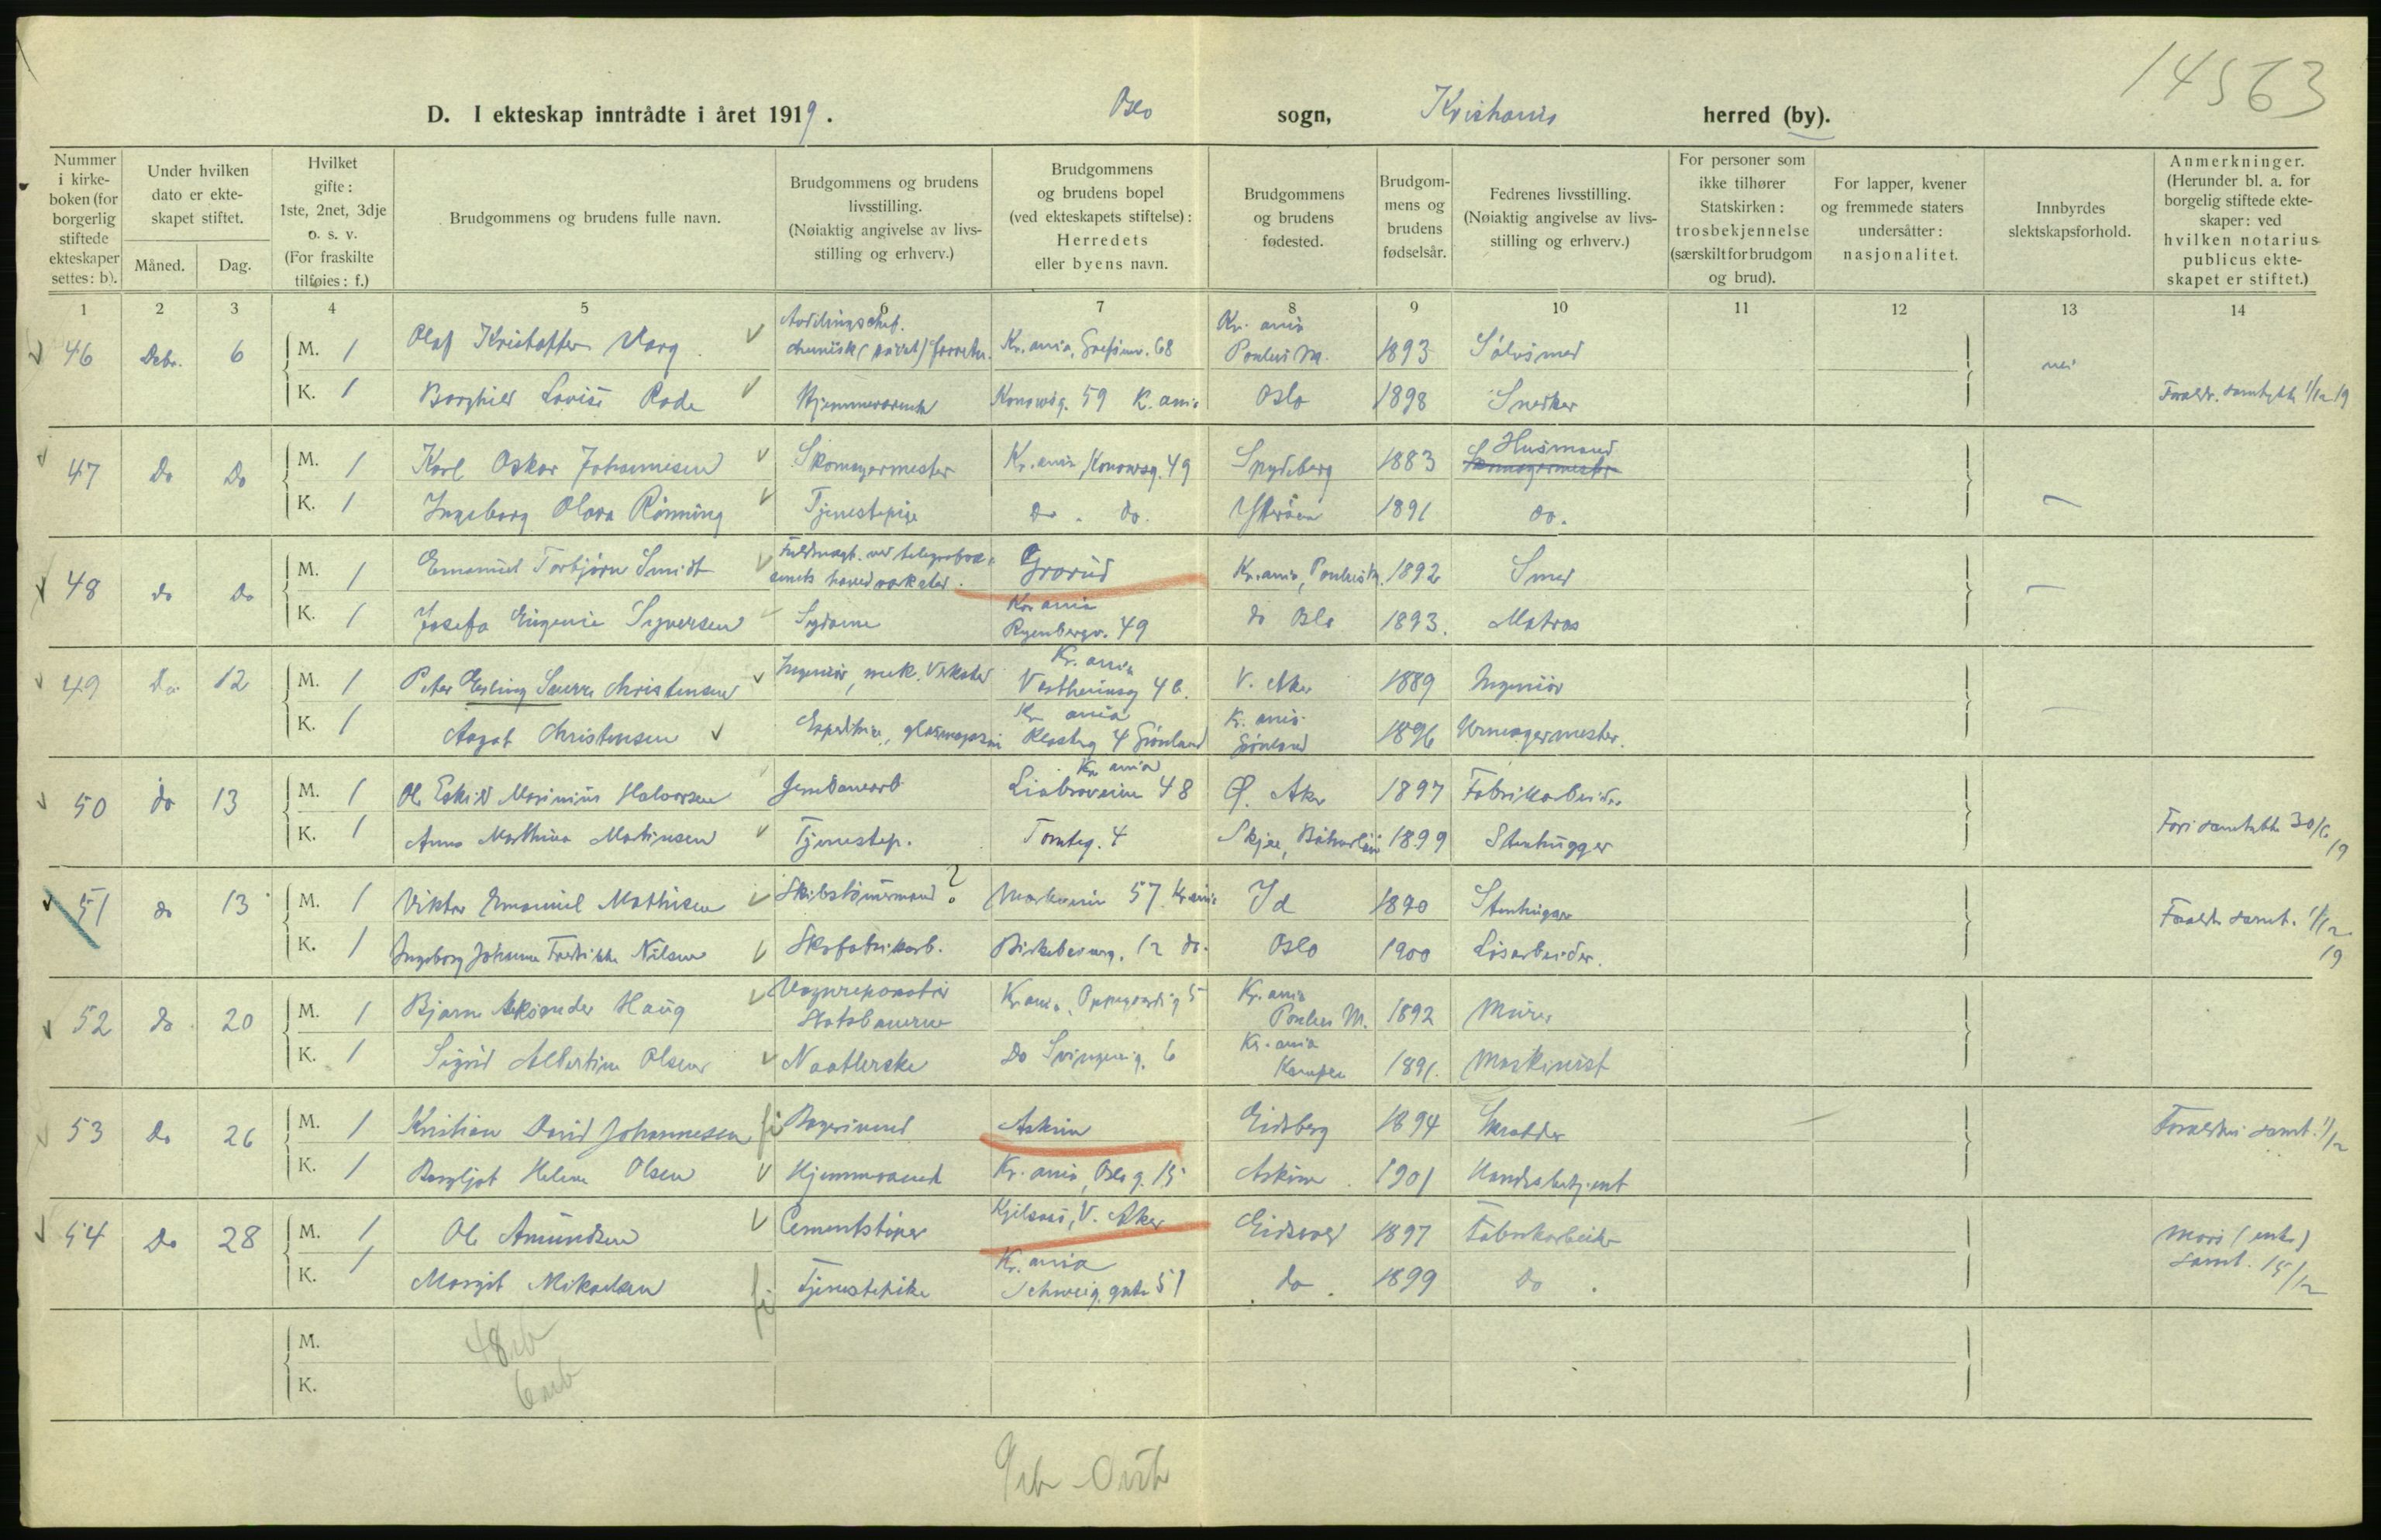 14563
D. I ekteskap inntrådte i året 1919. Oslo sogn, Kristiania herred (by).
Nummer i kirkeboken (for borgerlig stiftede ekteskaper settes: b).
Under hvilken dato er ekteskapet stiftet.
Måned. Dag.
Hvilket gifte: 1ste, 2net, 3dje o. s. v. (For fraskilte tilføies: f.)
Brudgommens og brudens fulle navn.
Brudgommens og brudens livsstilling. (Nøiaktig angivelse av livsstilling og erhverv.)
Brudgommens og brudens bopel (ved ekteskapets stiftelse): Herredets eller byens navn.
Brudgommens og brudens fødested.
Brudgommens og brudens fødselsår.
Fedrenes livsstilling. (Nøiaktig angivelse av livsstilling og erhverv.)
For personer som ikke tilhører Statskirken: trosbekjennelse (særskilt for brudgom og brud).
For lapper, kvener og fremmede staters undersåtter: nasjonalitet.
Innbyrdes slektskapsforhold.
Anmerkninger. (Herunder bl. a. for borgelig stiftede ekteskaper: ved hvilken notarius publicus ekteskapet er stiftet.)
1 2 3 4 5 6 7 8 9 10 11 12 13 14
46 Debr. 6 M. 1 Olaf Kristoffer Varg Kr.ania, Grefsenv. 68 Kr.ania Poulus M. 1893 Sølvsmed nei
K. 1 Borghild Lovise Rode Hjemmeværende Konowsg. 59 K.ania Oslo 1898 Snedker Foreldr. samtykke 1/12 19
47 Do Do M. 1 Karl Oskar Johannisen Skomagermester Kr.ania, Konowsg. 49 Spydeberg 1883 Husmand
K. 1 Ingeborg Olava Rönning Tjenestepige Do. do. Ytterøen 1891 do.
48 do Do M. 1 Emanuel Torbjörn Smidt Grorud Kr.ania, Poulus M. 1892 Smed
K. 1 Josefa Eugenie Syversen Sydame Kr.ania Ryenbergv. 49 do Oslo 1893. Matros
49 Do 12 M. 1 Peter Erling Sverre Christensen Ingeniör, mek. Verksted Kr.ania Vestheimsg 4 b. V. Aker 1889 Ingeniör
K. 1 Aagot Christensen Expeditrice, glasmagasin Kr ania Klosterg 4 Grönland K.ania Grönland 1896 Urmagermester.
50 do 13 M. 1 Ole Eskild Marinius Halvorsen Jernbanearb. Kr ania Liabroveien 48 Ø. Aker 1897 Fabrikarbeider
K. 1 Anna Mathina Martinsen Tjenestep. Tomteg. 4 Skjee, Båhuslän 1899 Stenhugger 30/6 19
51 do 13 M. 1 Viktor Emanuel Mathisen Skibstömmermand? 57 Kr.ania Id 1890 Stenhugger Foreldr. samt. 1/12 19
K. 1 Ingeborg Johanne Fredrikke Nilsen Skofabrikarb. Birkebeinerg. 12 do. Oslo 1900 Løsarbeider.
52 do 20 M. 1 Bjarne Aleksander Haug Vognreparatör Statsbanerne Kr.ania, Oppegaardsg 5 Kr.ania Poulus M. 1892 Murer
K. 1 Sigrid Albertine Olsen Naatlerske Do Svingens g. 6 Kr.ania Kampen 1891. Maskinist
53 Do 26 M. 1 Kristian David Johannesen Bagersvend Askim Eidsberg 1894 Skrædder Foreldres samt. 1/12
K. 1 Bergljot Helene Olsen Hjemmeværende Kr.ania, Oslo g. 15 Askim 1901 Handelsbetjent
54 Do 28 M. 1 Ole Amundsen Cementstöper Kjelsaas, V. Aker Eidsvold 1897 Fabrikarbeider Mors (enke) samt. 15/12
K. 1 Margit Mikaelsen Tjenestepike Kr.ania Schweig.gate 51 do. 1899 Do
M.
K.